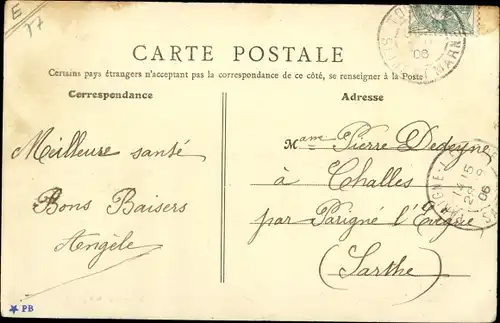 E
77
CARTE POSTALE
Certains pays étrangers n'acceptant pas la correspondance de ce côté, se renseigner à la Poste
Correspondance
Adresse
Meilleure santé
Bons Baisers
Angèle
Mame Pierre Dedeyne
à Challes
par Parigné l'Evêque
(Sarthe)
MARNE
06
14 15
06
PB